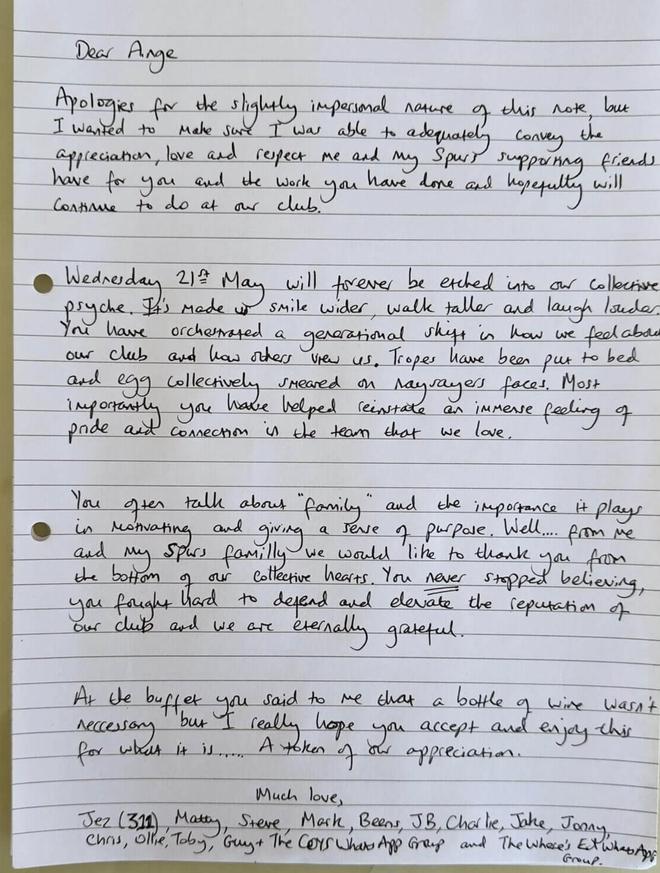 Dear Ange
Apologies for the slightly impersonal nature of this note, but
I wanted to make sure I was able to adequately convey the
appreciation, love and respect me and my Spurs supporting friends
have for you and the work you have done and hopefully will
continue to do at our club.
Wednesday 21st May will forever be etched into our collective
psyche. It's made us smile wider, walk taller and laugh louder.
You have orchestrated a generational shift in how we feel about
our club and how others view us. Tropes have been put to bed
and egg collectively smeared on naysayers faces. Most
importantly you have helped reinstate an immense feeling of
pride and connection in the team that we love.
You often talk about "family" and the importance it plays
in motivating and giving a sense of purpose. Well.... from me
and my Spurs familly we would like to thank you from
the bottom of our collective hearts. You never stopped believing,
you fought hard to defend and elevate the reputation of
our club and we are eternally grateful.
At the buffet you said to me that a bottle of wine wasn't
neccessary but I really hope you accept and enjoy this
for what it is..... A token of our appreciation.
Much love,
Jez (311), Matty, Steve, Mark, Beens, JB, Charlie, Jake, Jonny,
Chris, Ollie, Toby, Guy + The COYS WhatsApp Group and The Whose's Ex WhatsApp
Group.